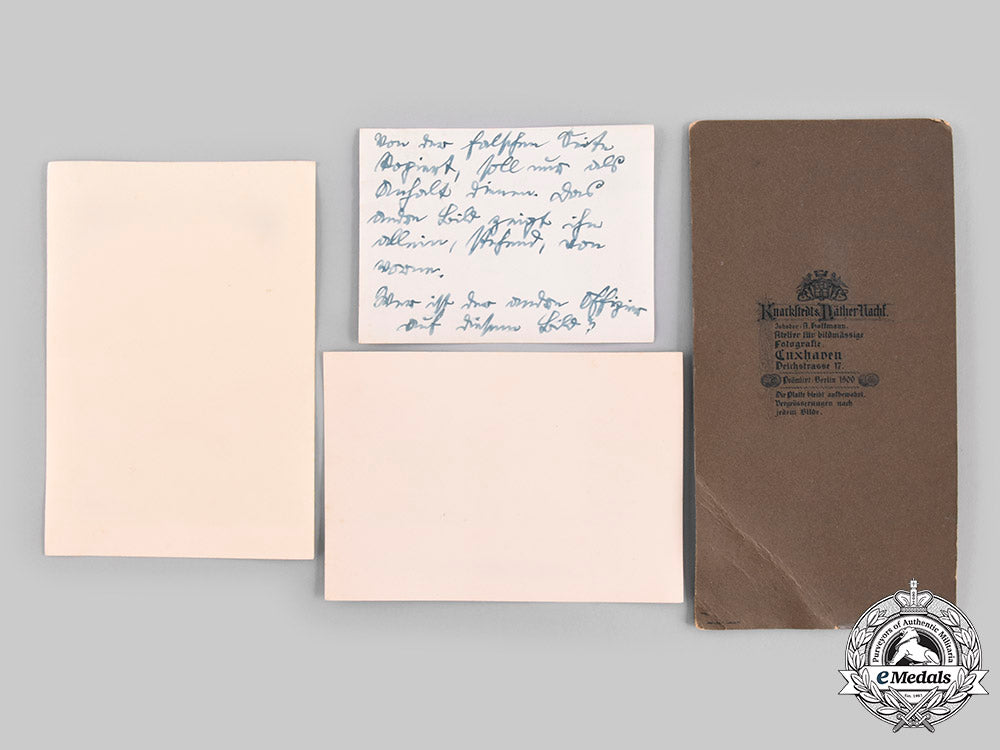 Von der falschen Seite
kopiert, soll nur als
Anhalt dienen. Das
andre Bild zeigt ihn
allein, stehend, von
vorne.
Wer ist der andre Offizier
auf diesem Bild?
Knackstedt & Näther Nachf.
Inhaber: A. Hoffmann.
Atelier für bildmässige
Fotografie.
Cuxhaven
Deichstrasse 17.
Prämiirt Berlin 1909
Die Platte bleibt aufbewahrt.
Vergrösserungen nach
jedem Bilde.
Purveyors of Authentic Militaria
eMedals